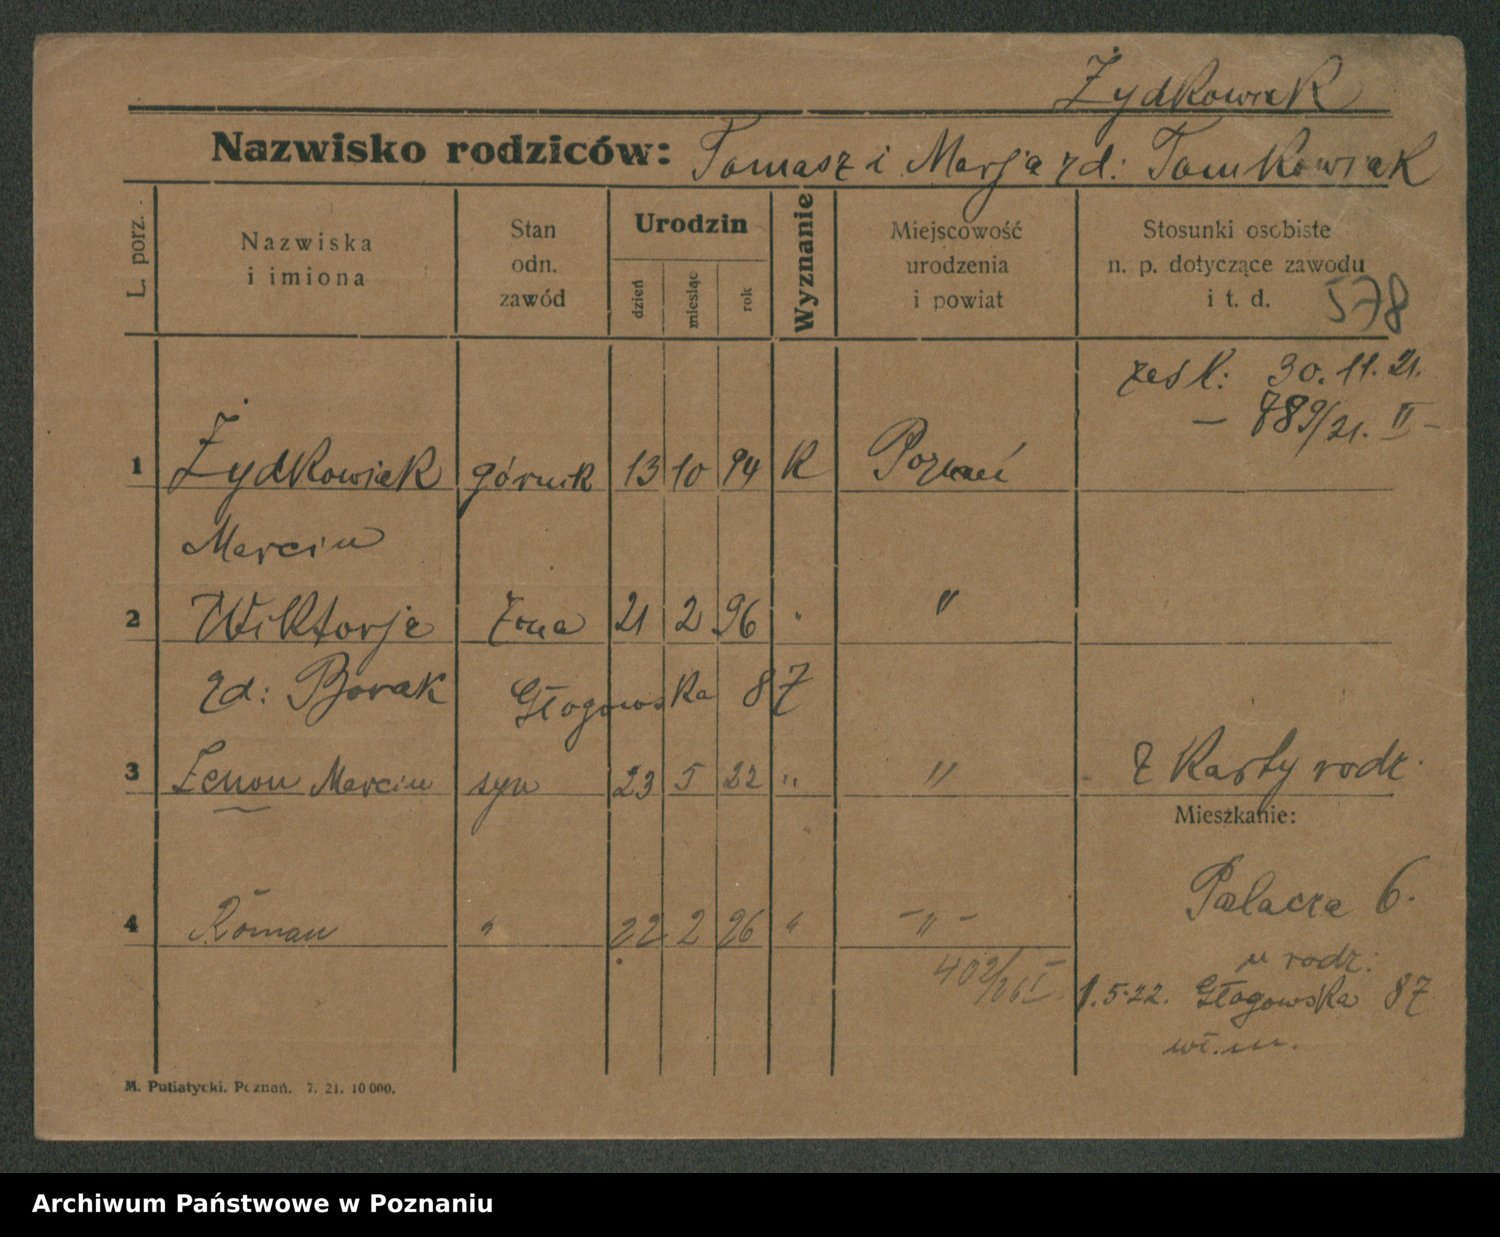 Żydkowiak
Nazwisko rodziców: Tomasz i Marja rd: Tomkowiak
L. porz.
Nazwiska
i imiona
Stan
odn.
zawód
Urodzin
dzień
miesiąc
rok
Wyznanie
Miejscowość
urodzenia
i powiat
Stosunki osobiste
n. p. dotyczące zawodu
i t. d.
578
ześl: 30.11.21.
— 789/21. II —
1 Żydkowiak górnik 13 10 94 K Poznań
Marcin
2 Wiktorja żona 21 2 96 " "
rd: Borak Głogowska 87
3 Zenon Marcin syn 23 5 22 " " z Karty rodz.
Mieszkanie:
Palacza 6.
4 Roman " 22 2 26 " — " —
u rodz:
402/26 I
1.5.22. Głogowska 87
wł. m.
M. Putiatycki. Poznań. 7. 21. 10 000.
Archiwum Państwowe w Poznaniu